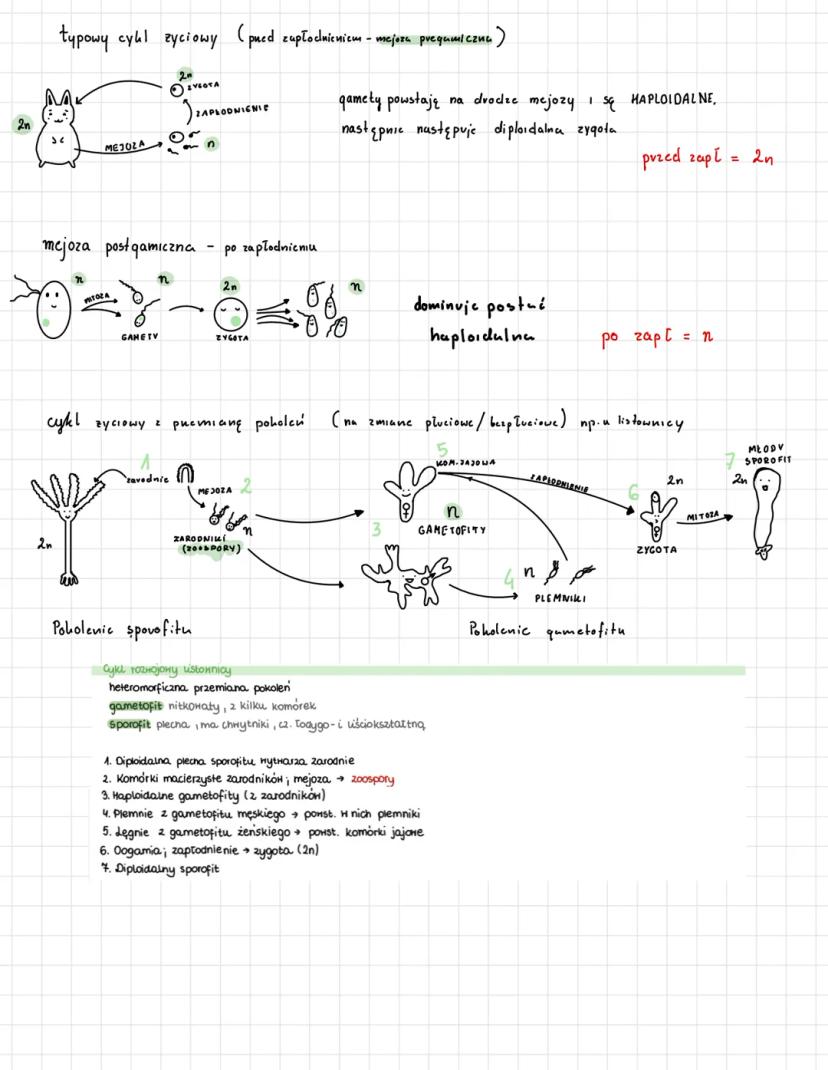 typowy cykl życiowy (przed zapłodnieniem - mejoza pregamiczna)
2n
ZYGOTA
ZAPŁODNIENIE
2n
MEJOZA
n
gamety powstają na drodze mejozy i są HAPLOIDALNE,
następnie następuje diploidalna zygota
przed zapł = 2n
mejoza postgamiczna - po zapłodnieniu
n
MITOZA
n
GAMETY
2n
ZYGOTA
n
dominuje postać
haploidalna
po zapł = n
cykl życiowy z przemianą pokoleń (na zmianę płciowe/bezpłciowe) np. u listownicy
1
zarodnie
2n
MEJOZA 2
ZARODNIKI
(ZOOSPORY)
n
5
KOM. JAJOWA
n
GAMETOFITY
3
ZAPŁODNIENIE
4
n
PLEMNIKI
6
2n
ZYGOTA
MITOZA
7
MŁODY
SPOROFIT
2n
Pokolenie sporofitu
Pokolenie gametofitu
Cykl rozwojowy listownicy
heteromorficzna przemiana pokoleń
gametofit nitkowaty, z kilku komórek
sporofit plecha, ma chwytniki, cz. łodygo- i liściokształtną
1. Diploidalna plecha sporofitu wytwarza zarodnie
2. Komórki macierzyste zarodników; mejoza → zoospory
3. Haploidalne gametofity (z zarodników)
4. Plemnie z gametofitu męskiego → powst. w nich plemniki
5. Lęgnie z gametofitu żeńskiego → powst. komórki jajowe
6. Oogamia; zapłodnienie → zygota (2n)
7. Diploidalny sporofit